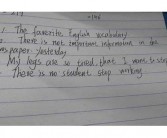 1. The favorite English vocabulary
2. There is not important information in
newspaper yesterday.
My legs are so tired that I want to
There is no student stop working